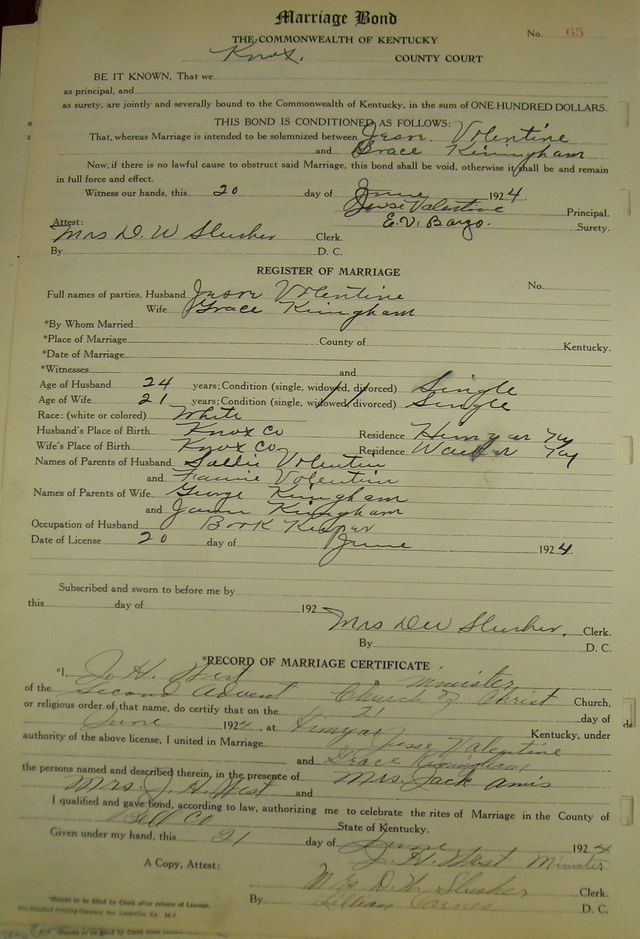 Marriage Bond
THE COMMONWEALTH OF KENTUCKY No. 65
Knox. COUNTY COURT
BE IT KNOWN, That we
as principal, and
as surety, are jointly and severally bound to the Commonwealth of Kentucky, in the sum of ONE HUNDRED DOLLARS.
THIS BOND IS CONDITIONED AS FOLLOWS:
That, whereas Marriage is intended to be solemnized between Volentine
and Grace Kiningham
Now, if there is no lawful cause to obstruct said Marriage, this bond shall be void, otherwise it shall be and remain
in full force and effect.
Witness our hands, this 20 day of June 1924
Jesse Valentine Principal.
E.V. Bargo. Surety.
Attest:
Mrs D. W Slusher Clerk.
By D. C.
REGISTER OF MARRIAGE
No.
Full names of parties, Husband Volentine
Wife Grace Kiningham
*By Whom Married
*Place of Marriage County of Kentucky.
*Date of Marriage
*Witnesses and
Age of Husband 24 years; Condition (single, widowed, divorced) Single
Age of Wife 21 years; Condition (single, widowed, divorced) Single
Race: (white or colored) White
Husband's Place of Birth Knox Co Residence Hinyar Ky
Wife's Place of Birth Knox Co Residence Ky
Names of Parents of Husband Sallie Volentin
and Volentin
Names of Parents of Wife George Kiningham
and Kiningham
Occupation of Husband Book Keeper
Date of License 20 day of June 1924
Subscribed and sworn to before me by
this day of 192
Mrs D W Slusher, Clerk.
By D. C.
*RECORD OF MARRIAGE CERTIFICATE
*I, J. H. West a minister
of the Second Advent Church of Christ Church,
or religious order of that name, do certify that on the 21 day of
June 1924, at Hinyar Kentucky, under
authority of the above license, I united in Marriage Jesse Valentine
and Grace Kiningham
the persons named and described therein, in the presence of Mrs. Jack Amis
Mrs. J. H. West and
I qualified and gave bond, according to law, authorizing me to celebrate the rites of Marriage in the County of
Bell Co State of Kentucky.
Given under my hand, this 21 day of June 1924
J. H. West Minister
A Copy, Attest:
Mrs D. W. Slusher Clerk.
By Lillian D. C.
*Blanks to be filled by Clerk after return of License.